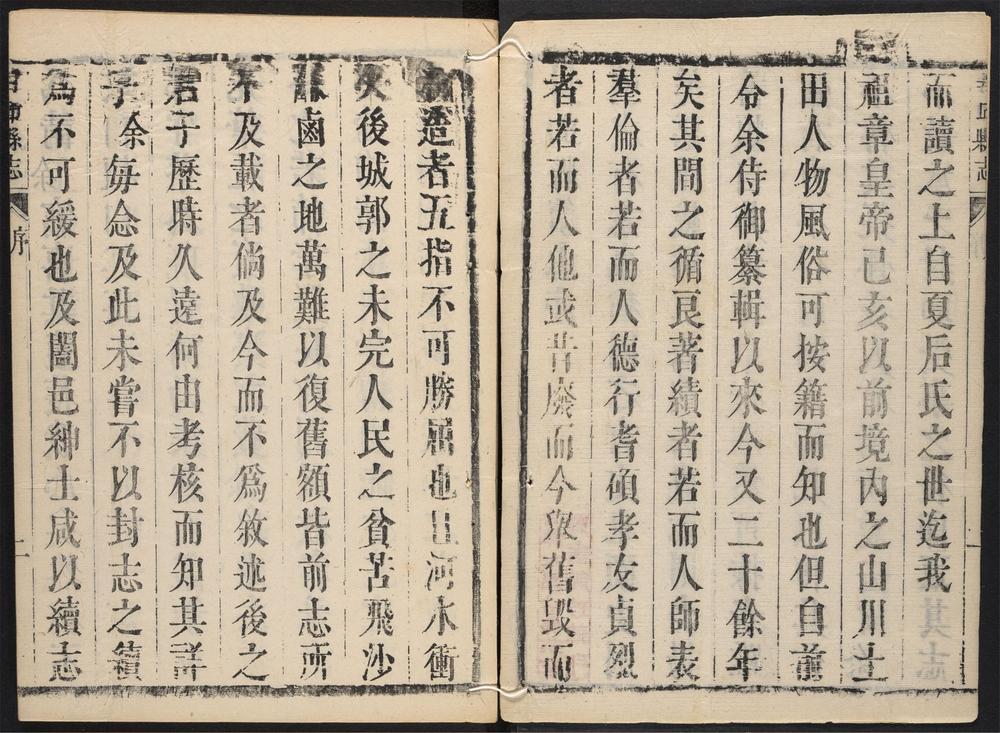 而讀之上自夏后氏之世迄我
祖章皇帝己亥以前境內之山川土
田人物風俗可按籍而知也但自前
令余侍御纂輯以來今又二十餘年
矣其間之循良著績者若而人師表
羣倫者若而人德行耆碩孝友貞烈
者若而人他或昔廢而今舉舊毀而
造者五指不可勝屈也且河水衝
決後城郭之未完人民之貧苦飛沙
鹵之地萬難以復舊額皆前志所
不及載者倘及今而不爲敘述後之
君子歷時久遠何由考核而知其詳
乎余每念及此未嘗不以封志之續
爲不可緩也及闔邑紳士咸以續志
縣志
序